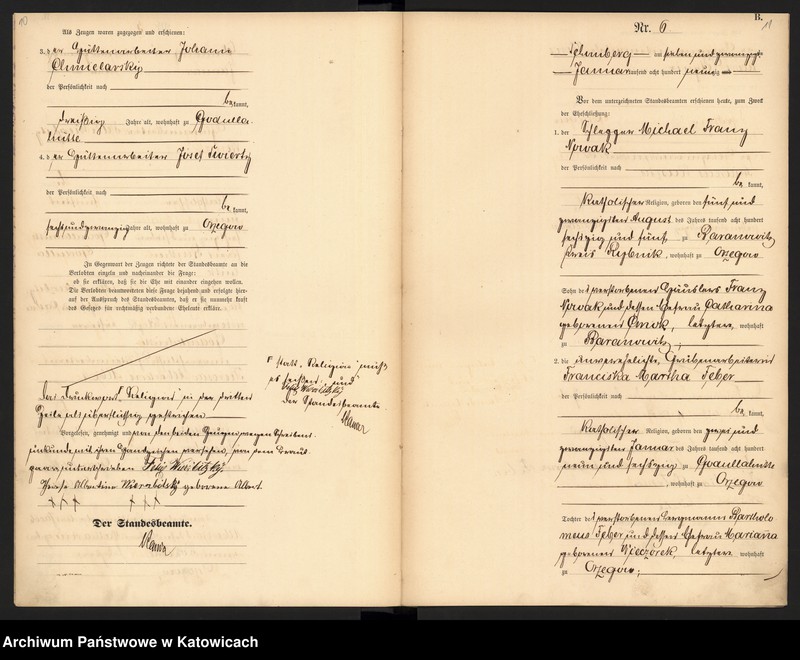 10
Als Zeugen waren zugegogen und erschienen:
3. der Hüttenarbeiter Johann
Chmielarsky
der Persönlichkeit nach
be kannt,
dreißig Jahre alt, wohnhaft zu Godulla-
hütte
4. der Hüttenarbeiter Josef
der Persönlichkeit nach
be kannt,
sechsundzwanzig Jahre alt, wohnhaft zu Orzegow
In Gegenwart der Zeugen richtete der Standesbeamte an die
Verlobten einzeln und nacheinander die Frage:
ob sie erklären, daß sie die Ehe mit einander eingehen wollen.
Die Verlobten beantworteten diese Frage bejahend und erfolgte hier-
auf der Ausspruch des Standesbeamten, daß er sie nunmehr kraft
des Gesetzes für rechtmäßig verbundene Eheleute erkläre.
Das Druckwort "Religion" in der dritten
Zeile als überflüssig gestrichen
Vorgelesen, genehmigt und von den beiden Zeugen wegen Schreibens-
unkunde mit ihren Handzeichen versehen, von dem
geborene Albert
+++ +++
Der Standesbeamte.
F statt "Religion" muß
es heißen "und"
Der Standesbeamte
B.
11
Nr. 6
am sechsundzwanzigsten
Januar tausend acht hundert neunzig
Vor dem unterzeichneten Standesbeamten erschienen heute, zum Zweck
der Eheschließung:
1. der Schlepper Michael Franz
Nowak
der Persönlichkeit nach
be kannt,
katholischer Religion, geboren den fünfund
zwanzigsten August des Jahres tausend acht hundert
sechszig und fünf, zu Baranowitz
Kreis Rybnik, wohnhaft zu Orzegow
Sohn des verstorbenen Häuslers Franz
Nowak und dessen Ehefrau Catharina
geborenen, letztere wohnhaft
zu Baranowitz;
2. die unverehelichte Grubenarbeiterin
Franciska Martha
der Persönlichkeit nach
be kannt,
katholischer Religion, geboren den zwei und
zwanzigsten Januar des Jahres tausend acht hundert
neun und sechszig zu Godullahütte
, wohnhaft zu Orzegow
Tochter des verstorbenen Bergmanns Bartholo
mäus und dessen Ehefrau Mariana
geborenen Wieczorek, letztere wohnhaft
zu Orzegow;
Archiwum Państwowe w Katowicach